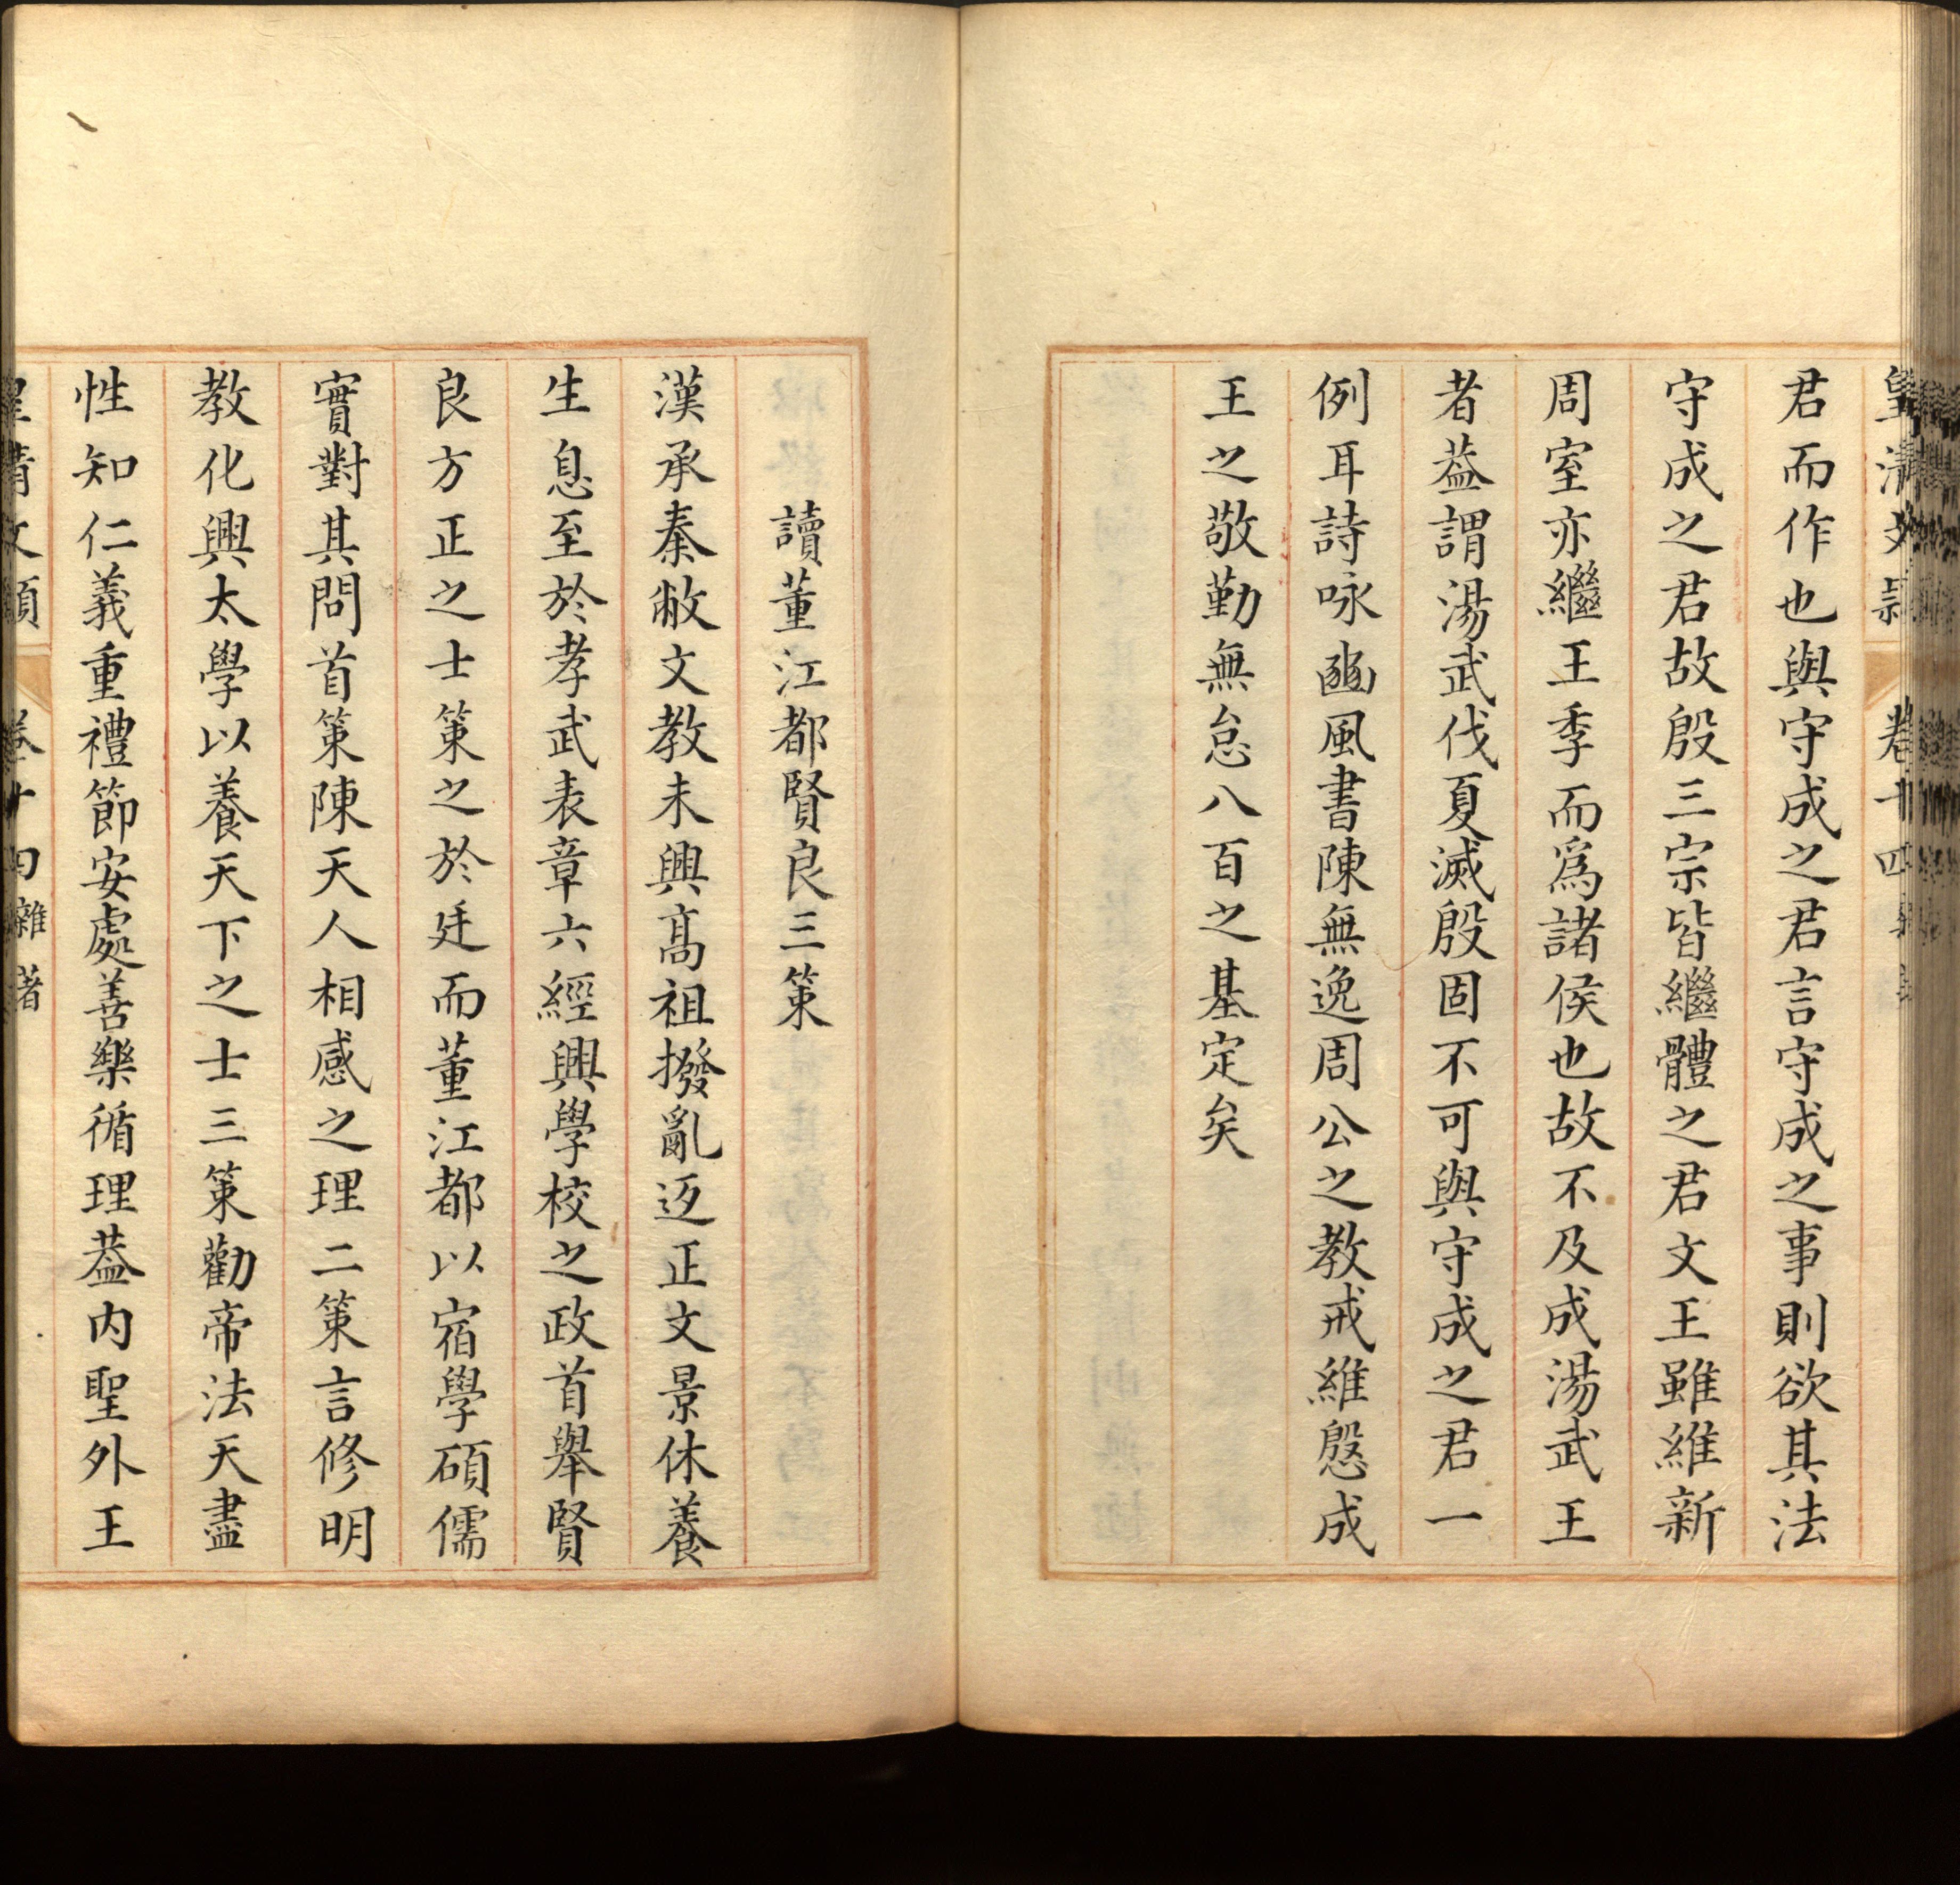 皇清文穎　卷十四
君而作也與守成之君言守成之事則欲其法
守成之君故殷三宗皆繼體之君文王雖維新
周室亦繼王季而爲諸侯也故不及成湯武王
者葢謂湯武伐夏滅殷固不可與守成之君一
例耳詩咏豳風書陳無逸周公之教戒維慇成
王之敬勤無怠八百之基定矣
讀董江都賢良三策
漢承秦敝文教未興高祖撥亂返正文景休養
生息至於孝武表章六經興學校之政首舉賢
良方正之士策之於廷而董江都以宿學碩儒
實對其問首策陳天人相感之理二策言修明
教化興太學以養天下之士三策勸帝法天盡
性知仁義重禮節安處善樂循理葢内聖外王
皇清文穎　卷十四雜著